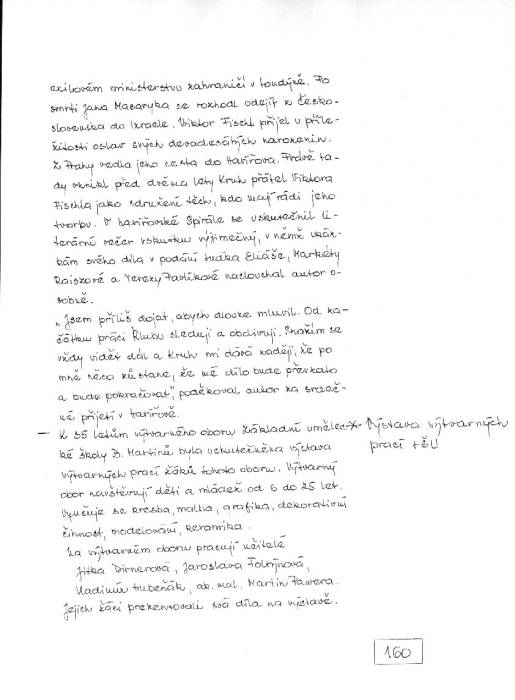 exilovém ministerstvu zahraničí v Londýně. Po
smrti Jana Masaryka se rozhodl odejít z Česko-
slovenska do Izraele. Viktor Fischl přijel u příle-
žitosti oslav svých devadesátých narozenin.
Z Prahy vedla jeho cesta do Havířova. Právě ta-
dy vznikl před dvěma lety Kruh přátel Viktora
Fischla jako sdružení těch, kdo mají rádi jeho
tvorbu. V havířovské Spirále se uskutečnil li-
terární večer vskutku výjimečný, v němž ukáz-
kám svého díla v podání Luďka Eliáše, Markéty
Raiszové a Terezy Pavlíkové naslouchal autor o-
sobně.
„Jsem příliš dojat, abych dlouze mluvil. Od za-
čátku práci Klubu sleduji a obdivuji. Snažím se
vždy vidět dál a Kruh mi dává naději, že po
mně něco zůstane, že mé dílo bude přežvato
a bude pokračovat", poděkoval autor za srdeč-
né přijetí v Havířově.
– K 35 letům výtvarného oboru Základní umělec- × Výstava výtvarných
ké školy B. Martinů byla uskutečněna výstava prací ZUŠ
výtvarných prací žáků tohoto oboru. Výtvarný
obor navštěvují děti a mládež od 6 do 25 let.
Vyučuje se kresba, malba, grafika, dekorativní
činnost, modelování, keramika.
Na výtvarném oboru pracují učitelé
Jitka Dirnerová, Jaroslava Foltýnová,
Vladimír Hubeňák, ak. mal. Martin Pawera.
Jejich žáci prezentovali svá díla na výstavě.
160